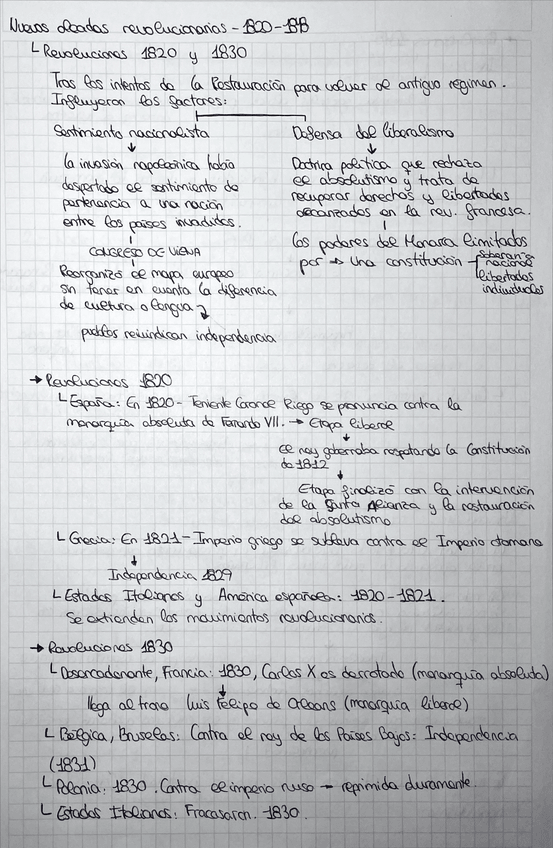 Nuevas oleadas revolucionarias - 1820-1848
Revoluciones 1820 y 1830
Tras los intentos de la Restauración para volver al antiguo régimen.
Influyeron los factores:
Sentimiento nacionalista
↓
la invasión napoleónica había
despertado el sentimiento de
pertenencia a una nación
entre los países invadidos.
CONGRESO DE VIENA
Reorganizó el mapa europeo
sin tener en cuenta la diferencia
de cultura o lengua
pueblos reivindican independencia
Defensa del liberalismo
↓
Doctrina política que rechaza
el absolutismo y trata de
recuperar derechos y libertades
alcanzados en la rev. francesa.
Los poderes del Monarca limitados
por → Una constitución
soberanía
nacional
libertades
individuales
→ Revoluciones 1820
España: En 1820 - Teniente Coronel Riego se pronuncia contra la
monarquía absoluta de Fernando VII. → Etapa liberal
↓
el rey gobernaba respetando la Constitución
de 1812
↓
Etapa finalizó con la intervención
de la Santa Alianza y la restauración
del absolutismo
Grecia: En 1821 - Imperio griego se subleva contra el Imperio otomano
↓
Independencia 1829
Estados Italianos y América española: 1820-1821.
Se extienden los movimientos revolucionarios.
→ Revoluciones 1830
Desencadenante, Francia: 1830, Carlos X es derrotado (monarquía absoluta)
↓
llega al trono Luis Felipe de Orleans (monarquía liberal)
Bélgica, Bruselas: Contra el rey de los Países Bajos: Independencia
(1831)
Polonia: 1830. Contra el imperio ruso → reprimida duramente.
Estados Italianos: Fracasaron. 1830.